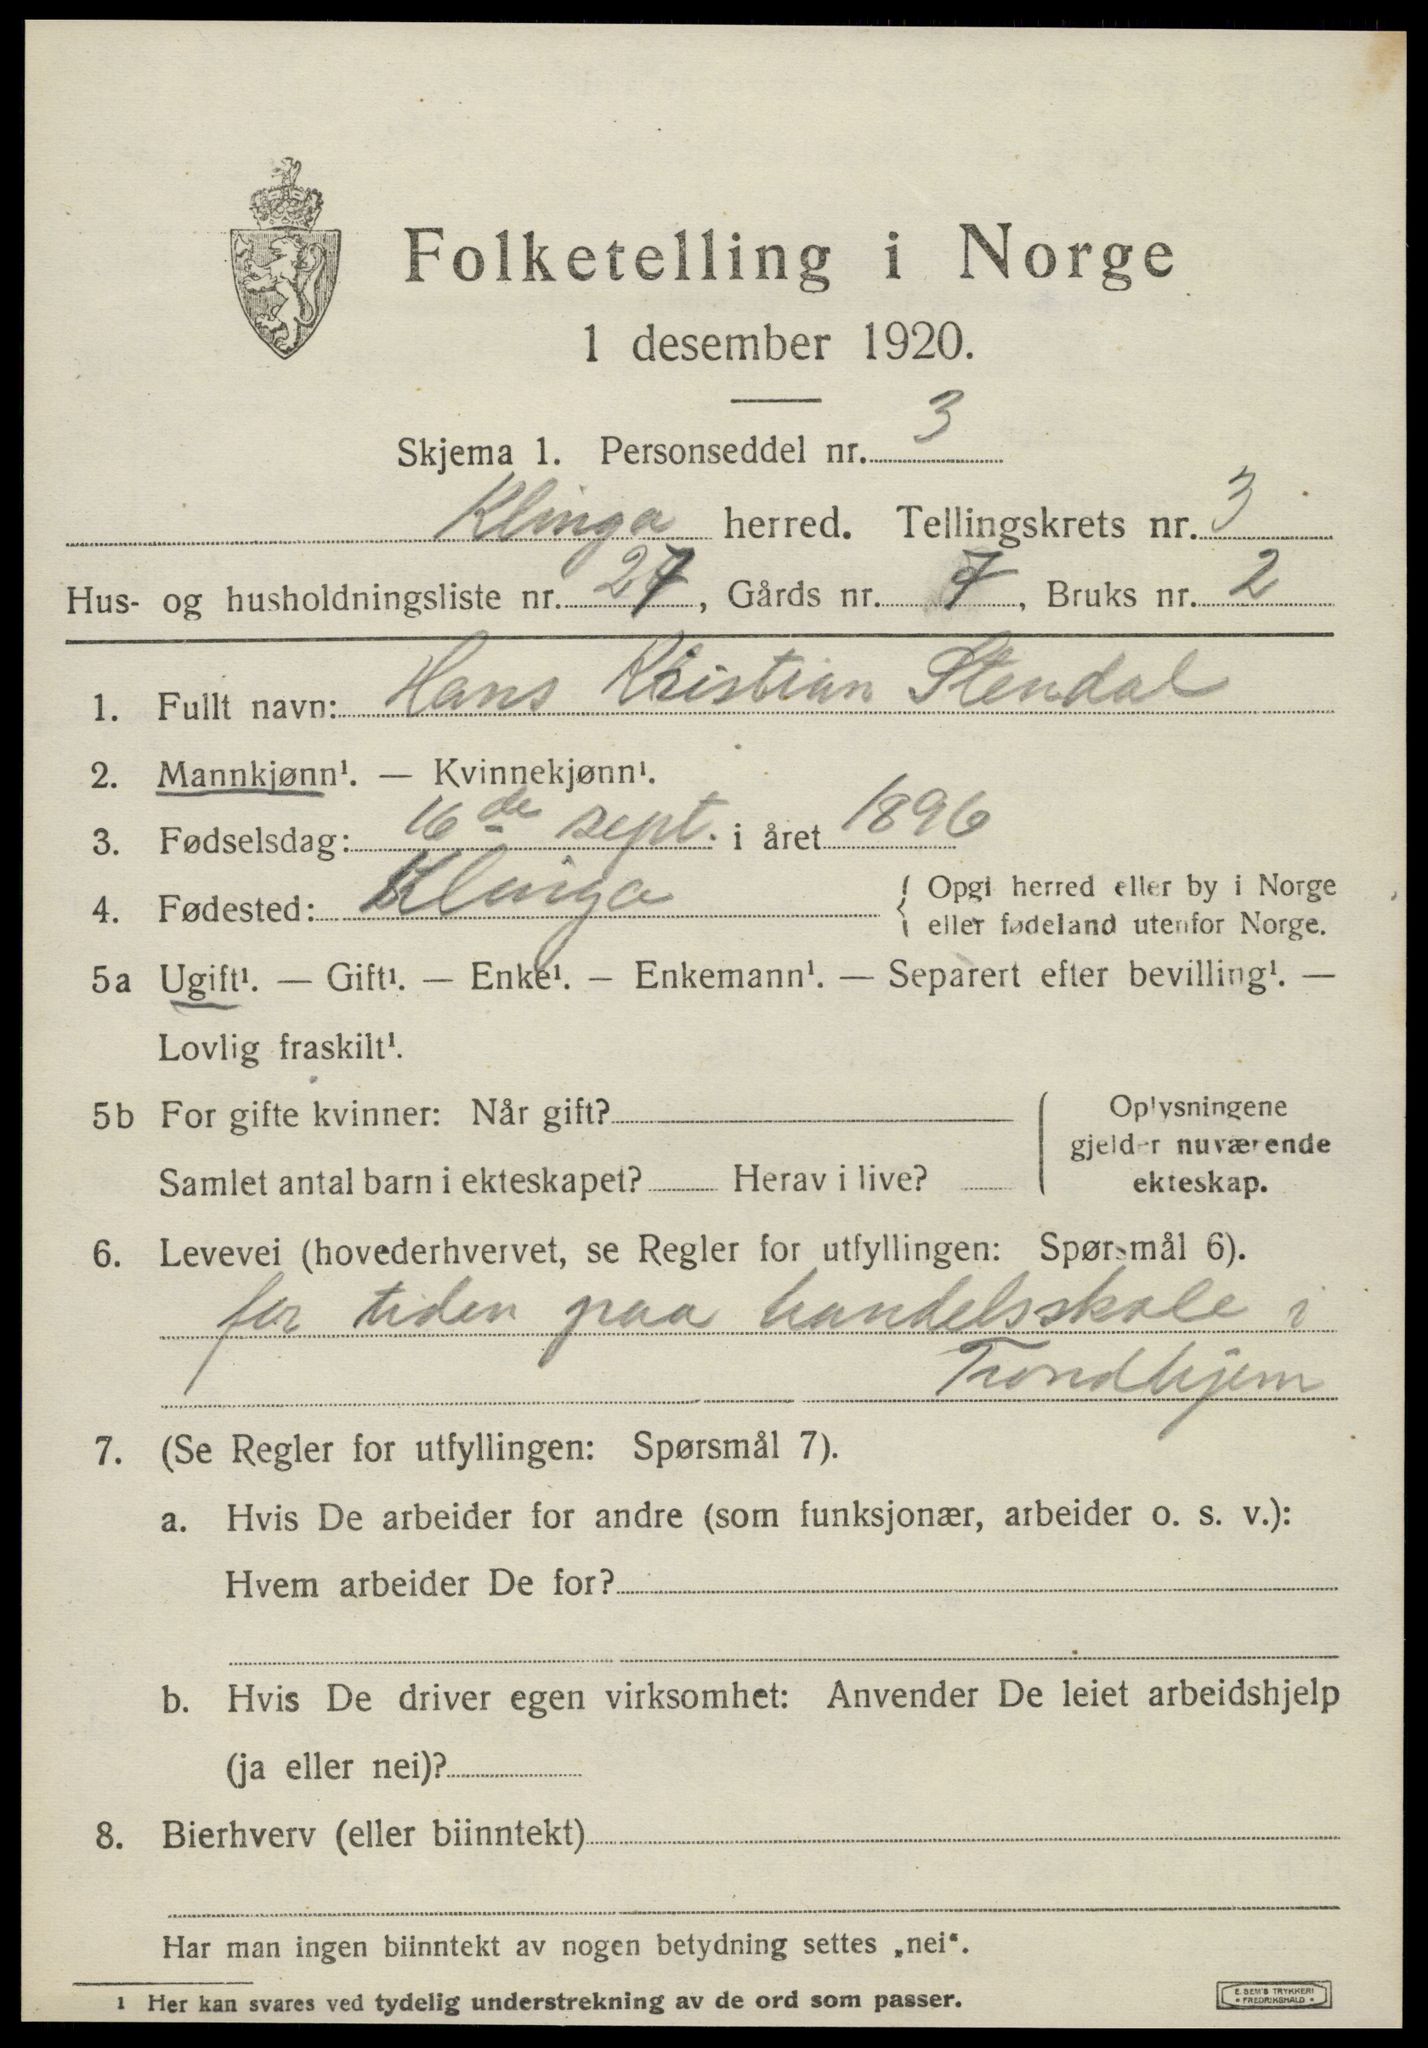 Folketelling i Norge
1 desember 1920.
Skjema 1. Personseddel nr. 3
Klinga herred. Tellingskrets nr. 3
Hus- og husholdningsliste nr. 27, Gårds nr. 7, Bruks nr. 2
1. Fullt navn: Hans Kristian Stendal
2. Mannkjønn¹. — Kvinnekjønn¹.
3. Fødselsdag: 16de sept. i året 1896
4. Fødested: Klinga { Opgi herred eller by i Norge
eller fødeland utenfor Norge.
5a Ugift¹. — Gift¹. — Enke¹. — Enkemann¹. — Separert efter bevilling¹. —
Lovlig fraskilt¹.
5b For gifte kvinner: Når gift?
Samlet antal barn i ekteskapet? Herav i live?
Oplysningene
gjelder nuværende
ekteskap.
6. Levevei (hovederhvervet, se Regler for utfyllingen: Spørsmål 6).
for tiden paa handelsskole i
Trondhjem
7. (Se Regler for utfyllingen: Spørsmål 7).
a. Hvis De arbeider for andre (som funksjonær, arbeider o. s. v.):
Hvem arbeider De for?
b. Hvis De driver egen virksomhet: Anvender De leiet arbeidshjelp
(ja eller nei)?
8. Bierhverv (eller biinntekt)
Har man ingen biinntekt av nogen betydning settes „nei“.
1 Her kan svares ved tydelig understrekning av de ord som passer.
E. SEM'S TRYKKERI
• FREDRIKSHALD •